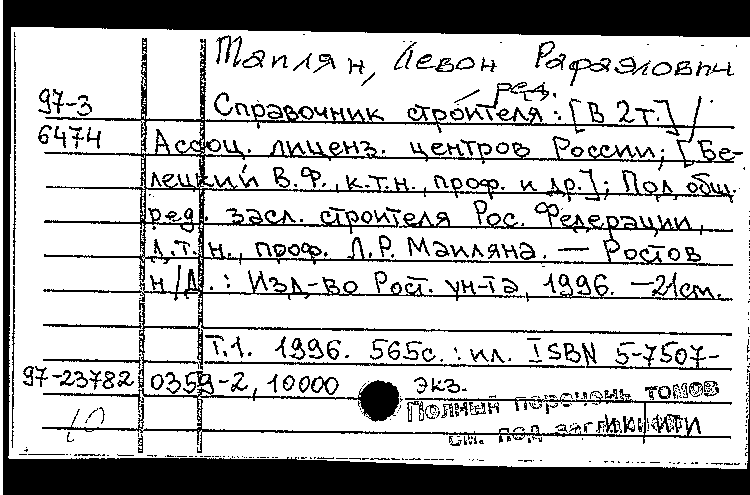 Маилян, Левон Рафаэлович
ред.
97-3 Справочник строителя: [В 2т.] /
6474 Ассоц. лиценз. центров России; [Бе-
лецкий В.Ф., к.т.н., проф. и др.]; Под общ.
ред. засл. строителя Рос. Федерации,
д.т.н., проф. Л.Р. Маиляна. — Ростов
н/Д.: Изд-во Рост. ун-та, 1996. —21см.
Т.1. 1996. 565с.: ил. ISBN 5-7507-
97-23782 0359-2, 10000 экз.
Полный перечень томов
10 см. под заглавием